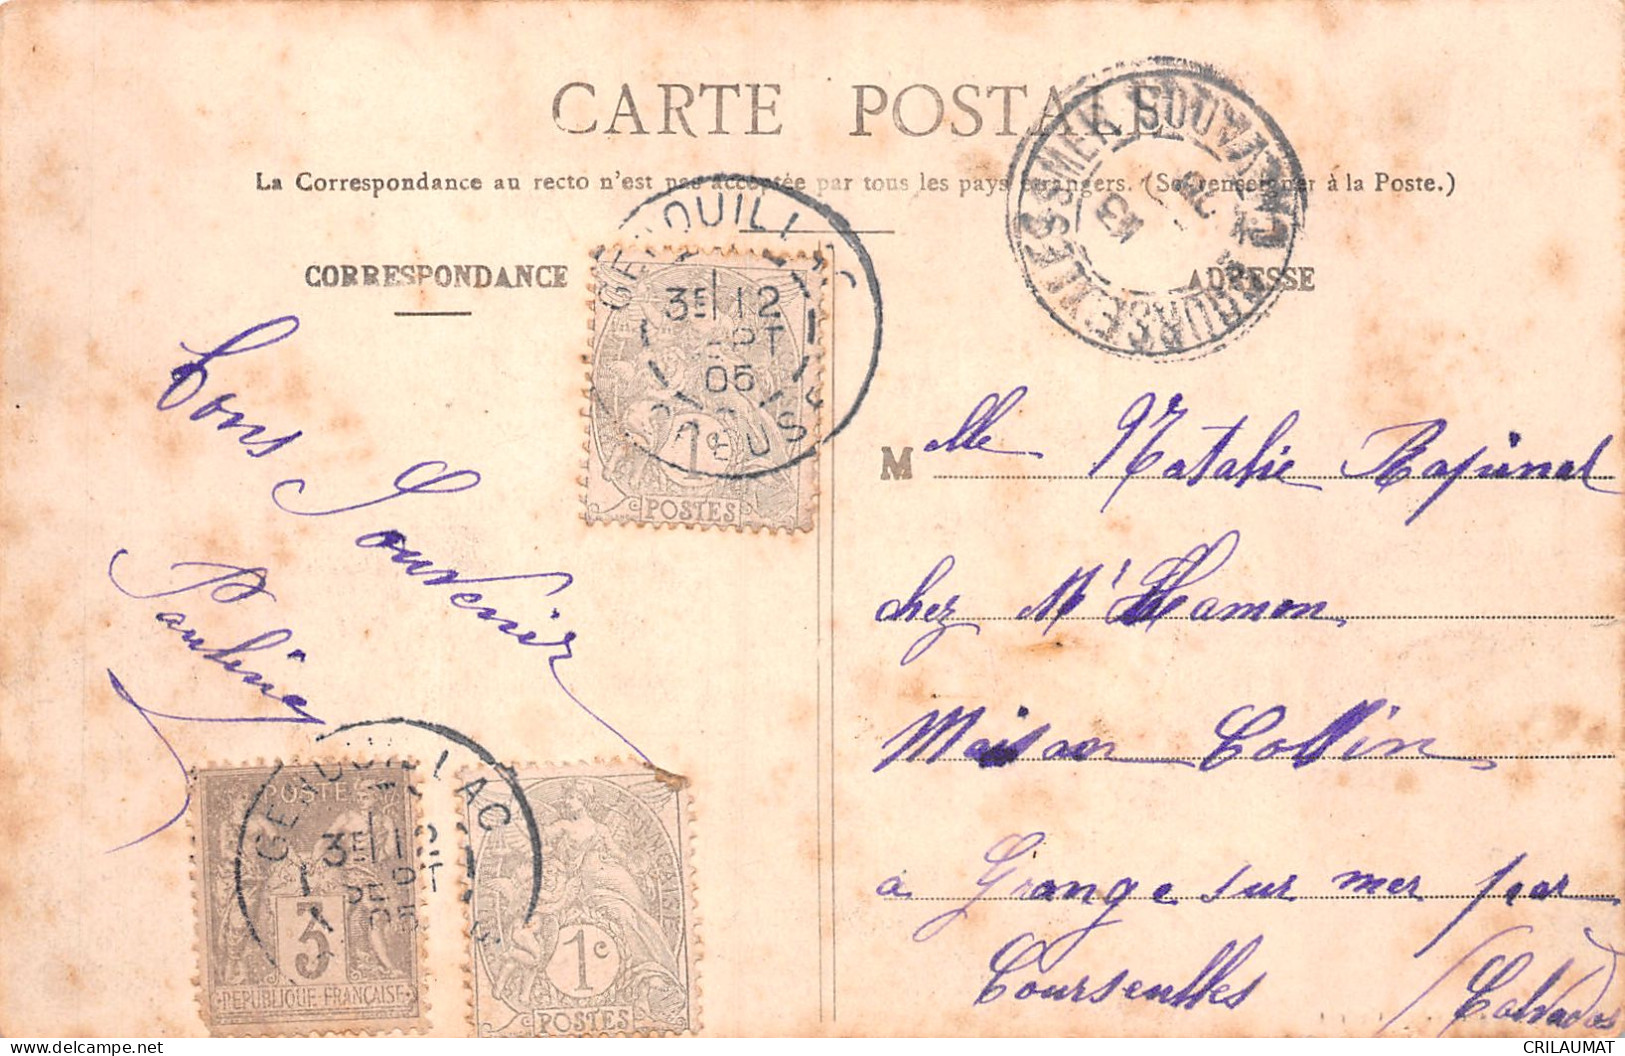 CARTE POSTALE
La Correspondance au recto n'est pas acceptée par tous les pays étrangers. (Se renseigner à la Poste.)
CORRESPONDANCE
ADRESSE
COURSEULLES S MER CALVADOS
13
GENOUILLAC
3E 12
SEPT
05
CREUSE
1c
POSTES
Bons Souvenir
Pauline
Melle Natalie Rapinel
chez Mr Hamon
Maison Collin
a Grange sur mer par
Courseulles
Calvados
POSTES
GENOUILLAC
3E 12
SEPT
05
3
REPUBLIQUE FRANÇAISE
1c
POSTES
delcampe.net
CRILAUMAT